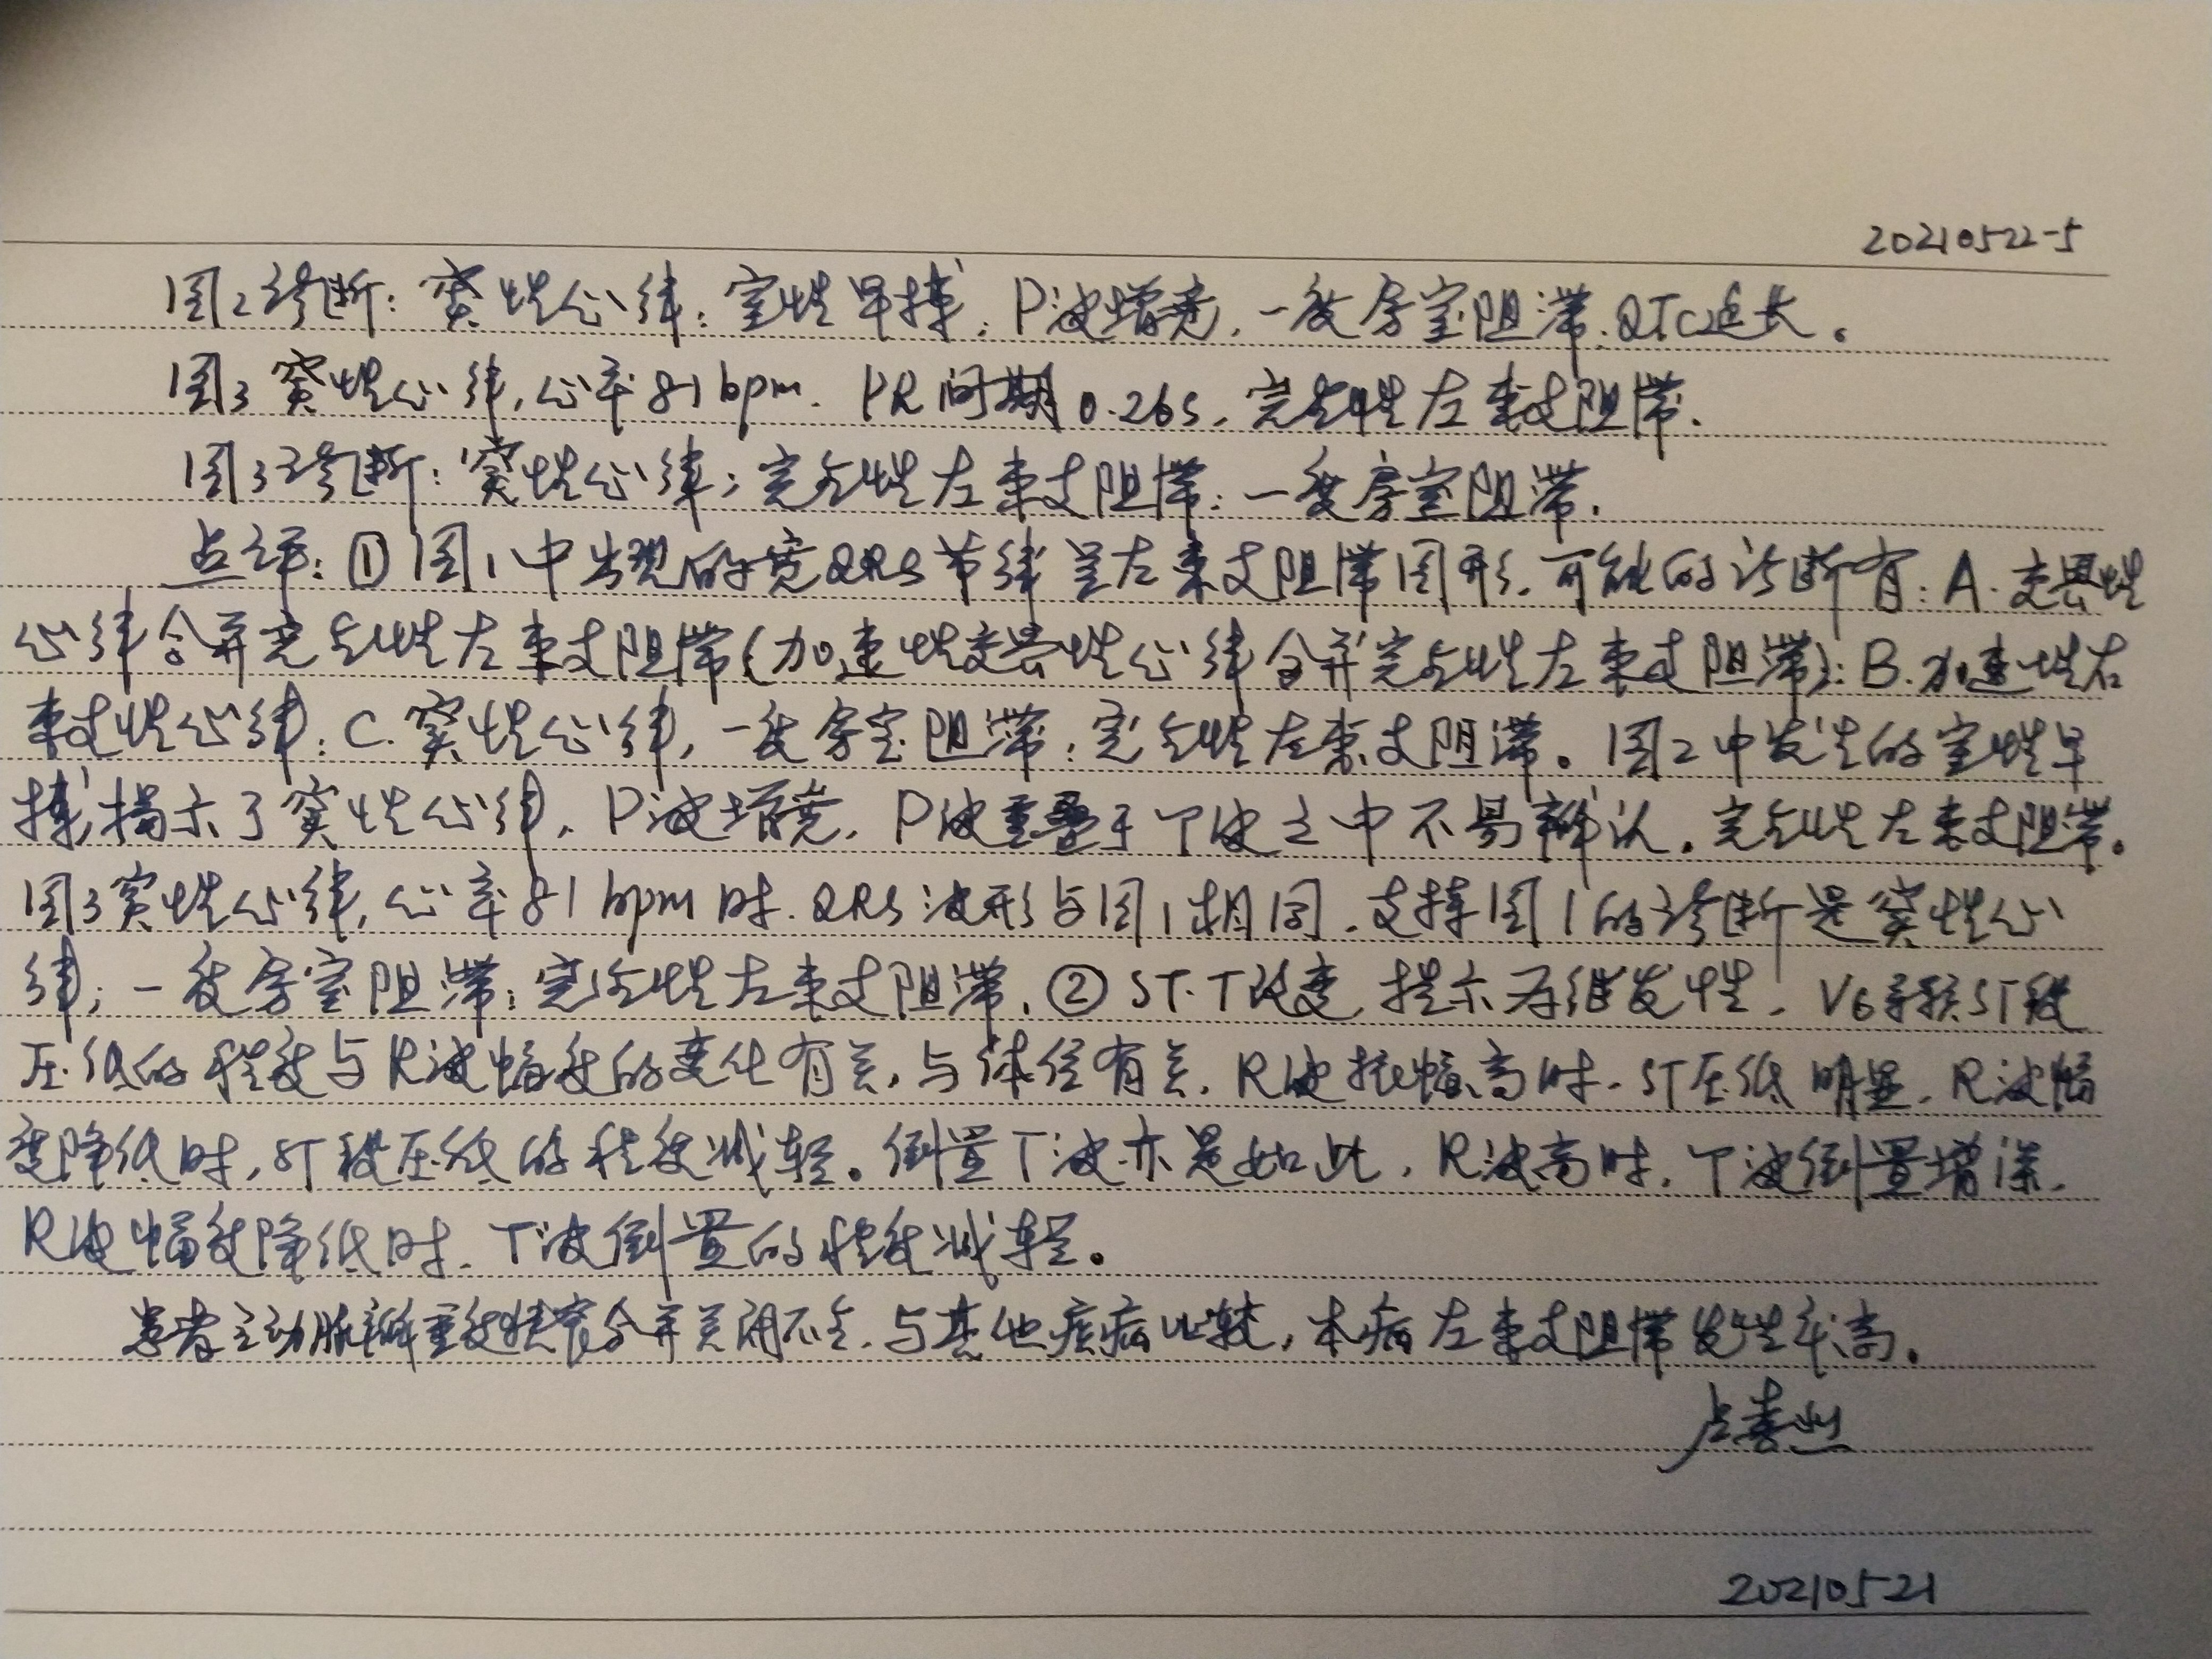 20210522-5
图2诊断:窦性心律;室性早搏;P波增宽,一度房室阻滞,QTc延长。
图3 窦性心律,心率81bpm.PR间期0.26s,完全性左束支阻滞.
图3诊断:窦性心律;完全性左束支阻滞;一度房室阻滞.
点评:①图1中出现的宽QRS节律呈左束支阻滞图形,可能的诊断有:A.交界性
心律合并完全性左束支阻滞(加速性交界性心律合并完全性左束支阻滞);B.加速性右
束支性心律;C.窦性心律,一度房室阻滞;完全性左束支阻滞。图2中发生的室性早
搏,揭示了窦性心律,P波增宽,P波重叠于T波之中不易辨认,完全性左束支阻滞。
图3窦性心律,心率81bpm时.QRS波形与图1相同,支持图1的诊断是窦性心
律;一度房室阻滞;完全性左束支阻滞.②ST.T改变,提示为继发性,V6导联ST段
压低的程度与R波幅度的变化有关,与体位有关,R波振幅高时,ST压低明显,R波幅
度降低时,ST段压低的程度减轻。倒置T波亦是如此,R波高时,T波倒置增深,
R波幅度降低时,T波倒置的程度减轻。
患者主动脉瓣重度狭窄合并关闭不全,与其他疾病比较,本病左束支阻滞发生率高。
卢喜烈
20210521